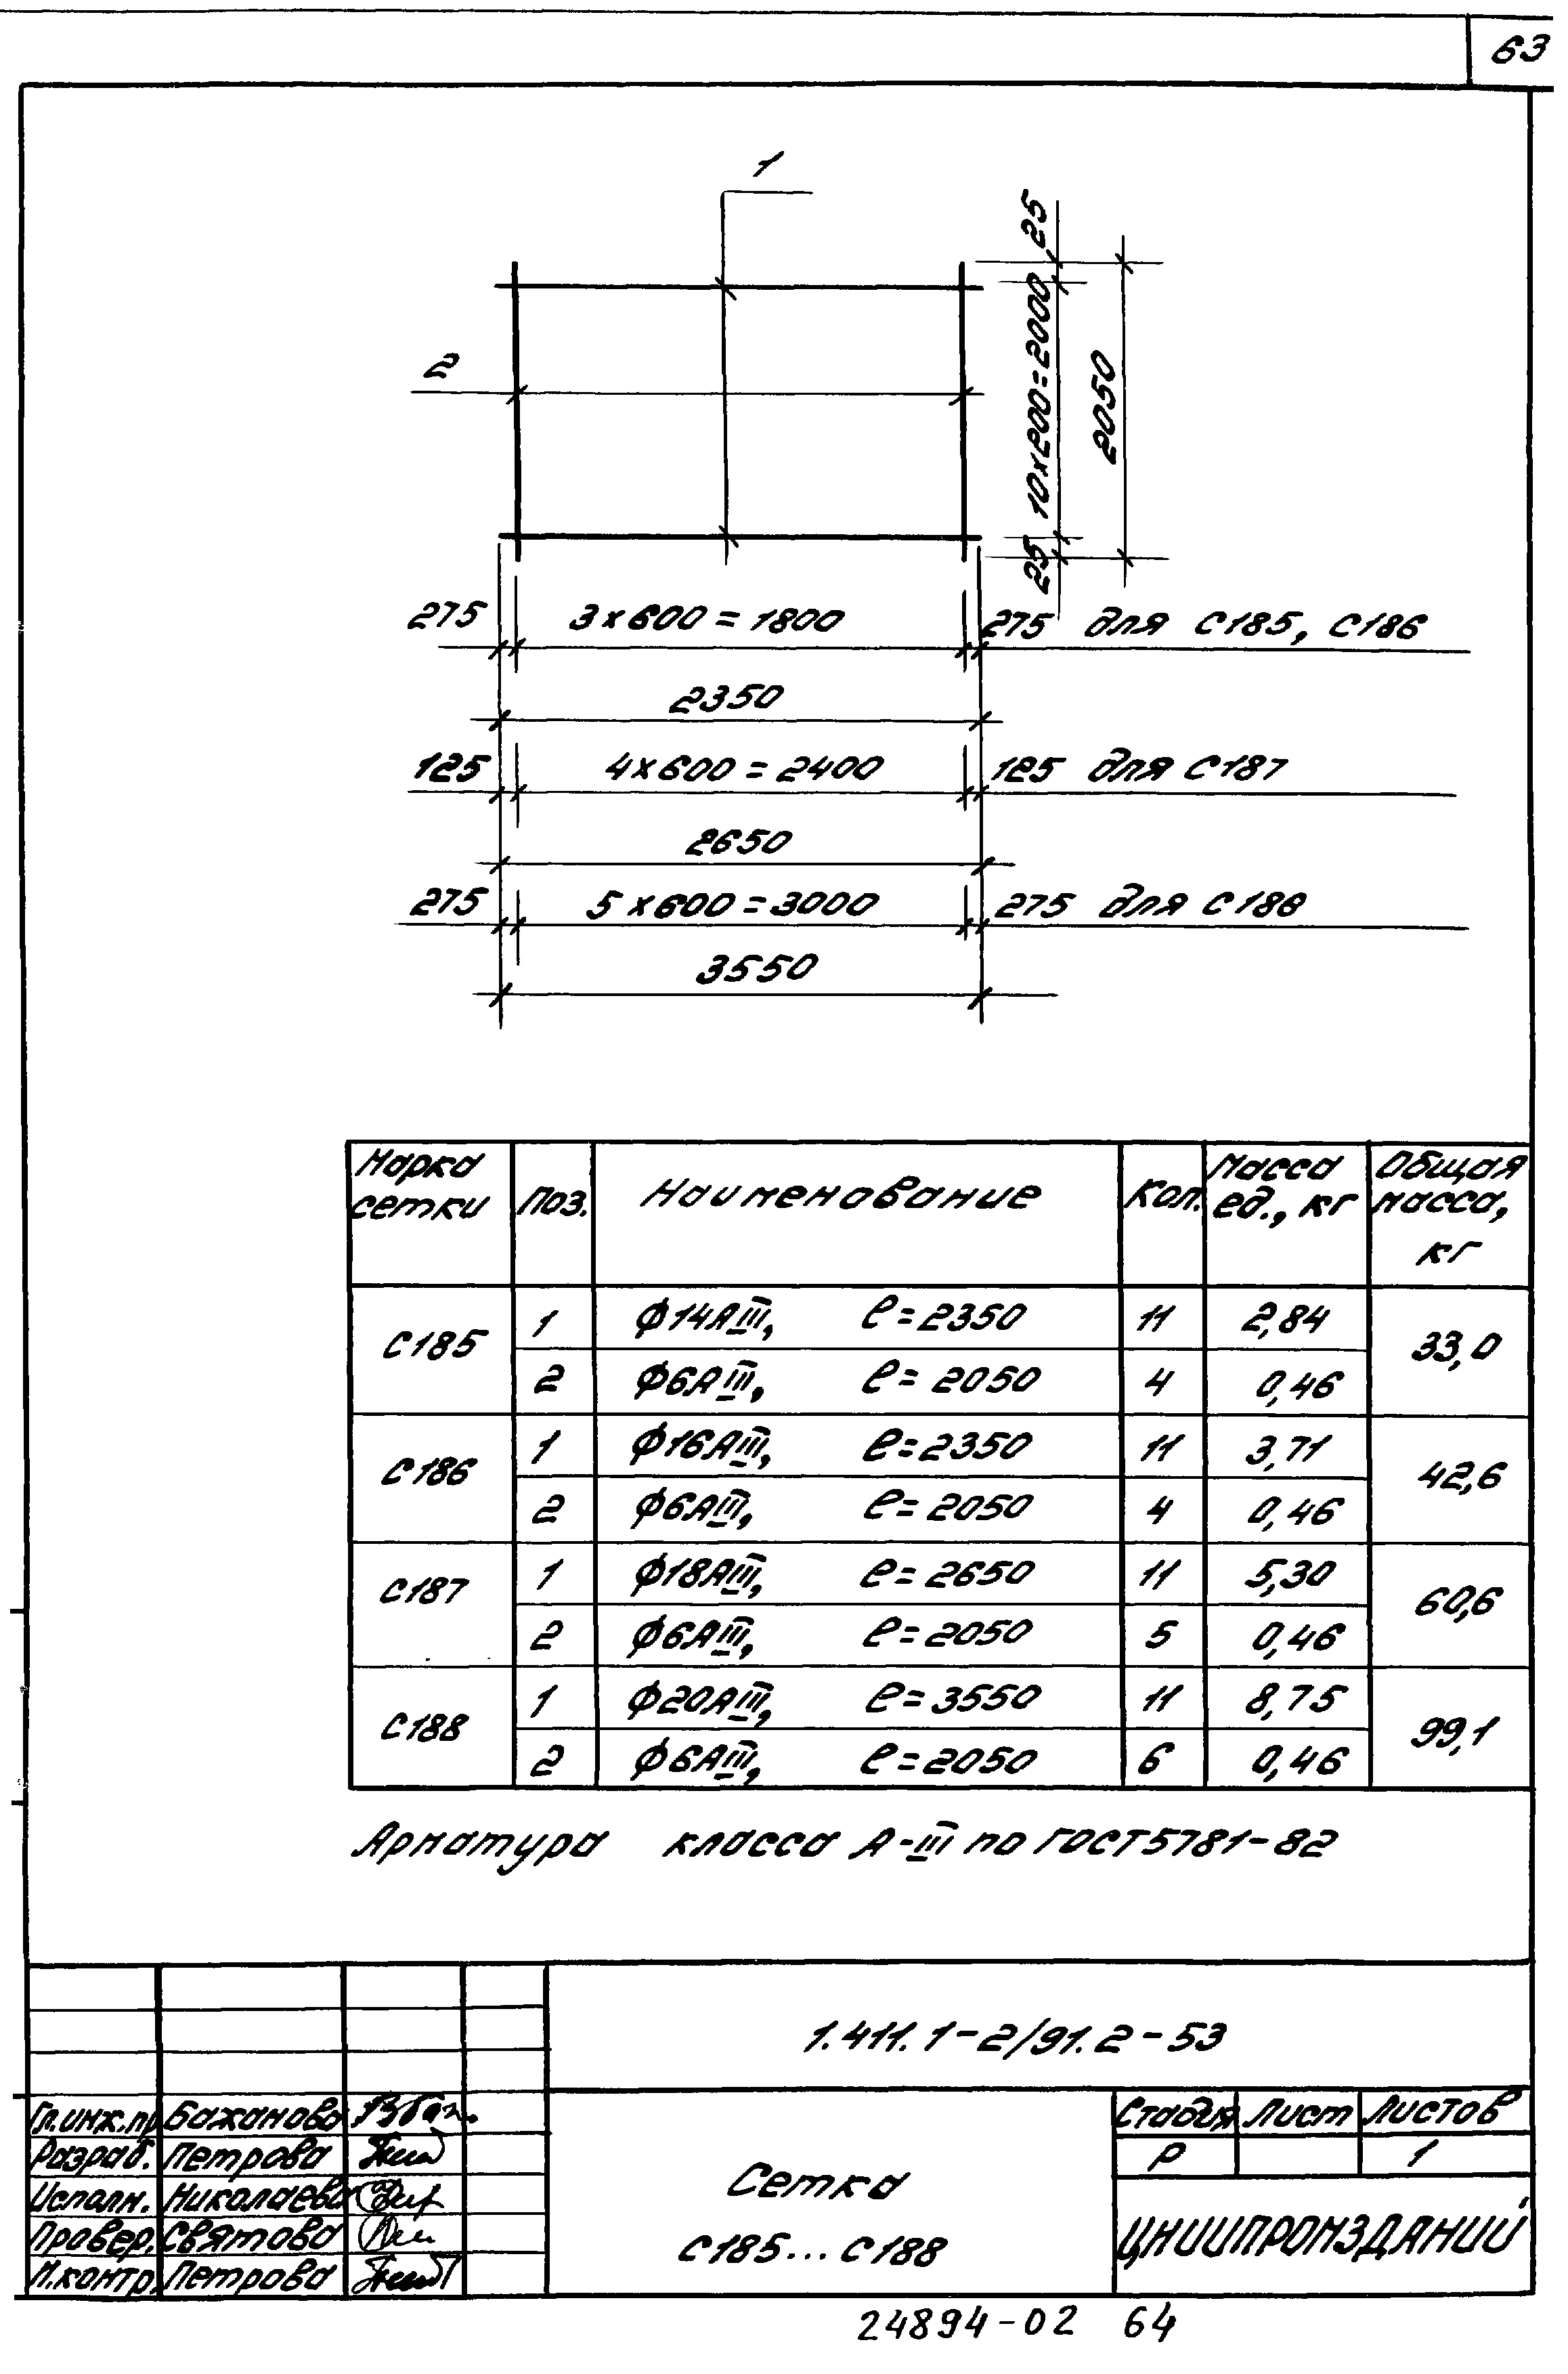 63
1
2
25
10х200=2000
2050
25
275 3х600=1800 275 для С185, С186
2350
125 4х600=2400 125 для С187
2650
275 5х600=3000 275 для С188
3550
Марка сетки Поз. Наименование Кол. Масса ед., кг Общая масса, кг
С185 1 ϕ14АIII, ℓ=2350 11 2,84 33,0
2 ϕ6АIII, ℓ=2050 4 0,46
С186 1 ϕ16АIII, ℓ=2350 11 3,71 42,6
2 ϕ6АIII, ℓ=2050 4 0,46
С187 1 ϕ18АIII, ℓ=2650 11 5,30 60,6
2 ϕ6АIII, ℓ=2050 5 0,46
С188 1 ϕ20АIII, ℓ=3550 11 8,75 99,1
2 ϕ6АIII, ℓ=2050 6 0,46
Арматура класса А-III по ГОСТ 5781-82
1.411.1-2/91.2-53
Гл.инж.пр. Бажанова
Разраб. Петрова
Исполн. Николаева
Провер. Святова
Н.контр. Петрова
Сетка
С185...С188
Стадия Лист Листов
Р 1
ЦНИИПРОМЗДАНИЙ
24894-02 64